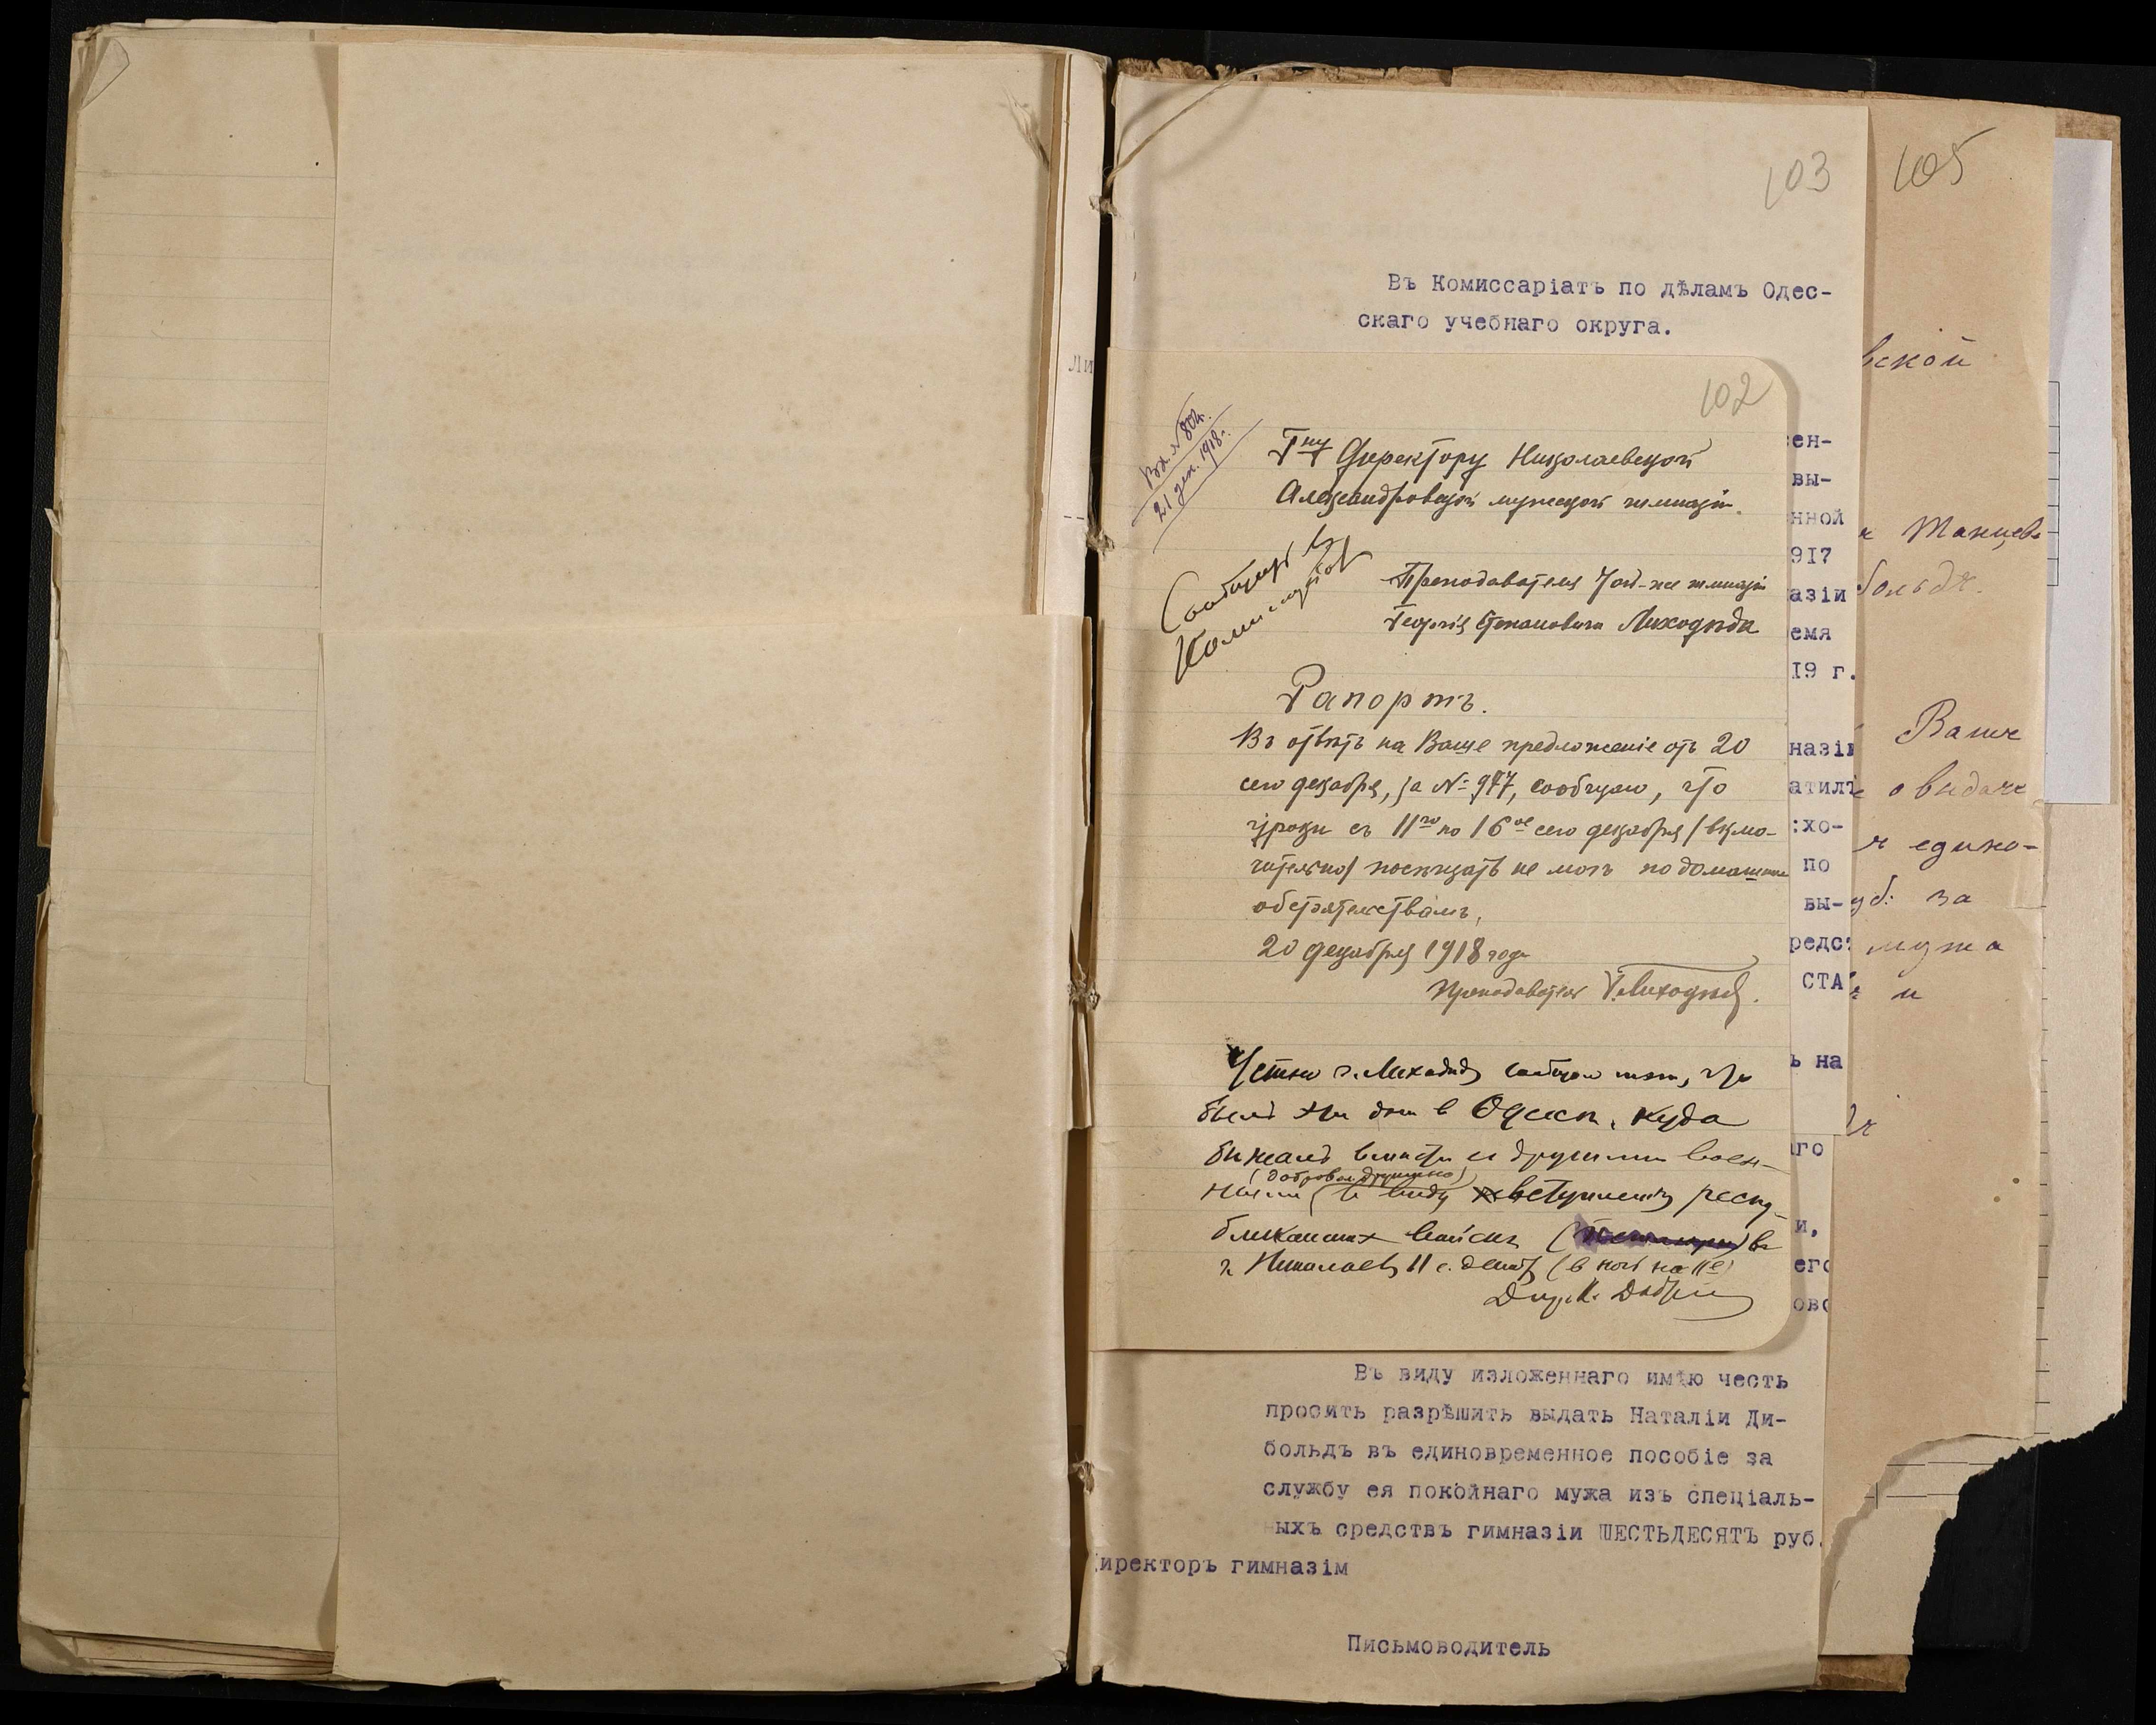 103
105
Въ Комиссаріатъ по дѣламъ Одес-
скаго учебнаго округа.
102
Вх. № 802.
21 дек. 1918 г.
Гну Директору Николаевской
Александровской мужской гимназіи.
Сообщить в
Преподавателя той-же гимназіи
Георгія Степановича Лиходѣда
Рапортъ.
Въ отвѣтъ на Ваше предложеніе отъ 20
сего декабря, за № 977, сообщаю, что
уроки съ 11го по 16ое сего декабря (вклю-
чительно) посѣщать не могъ по домашнимъ
обстоятельствамъ.
20 декабря 1918 года
Преподаватель Г. Лиходѣд.
Устно г. Лиходѣд сообщил мне, что
был эти дни в Одессе, куда
бежалъ вместе с другими воен-
(добровол. дружина)
ными в виду вступления респу-
бликанских войскъ ( ) в
г. Николаев 11 с. декаб. (в ночь на 11е)
Дир. К.
ен-
вы-
нной
917
азіи
емя
I9 г.
назіи
атилъ
:хо-
по
вы-
редст
СТА
ъ на
аго
и,
его
ово
вской
Танцевъ
больдъ.
Ваше
о выдаче
едино-
уб: за
мужа
и
Ли
Въ виду изложеннаго имѣю честь
просить разрѣшить выдать Наталіи Ди-
больдъ въ единовременное пособіе за
службу ея покойнаго мужа изъ спеціаль-
ныхъ средствъ гимназіи ШЕСТЬДЕСЯТЪ руб.
иректоръ гимназім
Письмоводитель